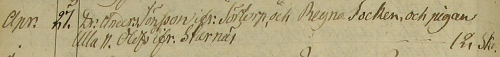 Apr. 27. Dr. Anders Jönsson ifr. Torstorp, och Regna Socken, och pigan
Ulla N. Olofs ifr. Skarnäs 12 Sk.